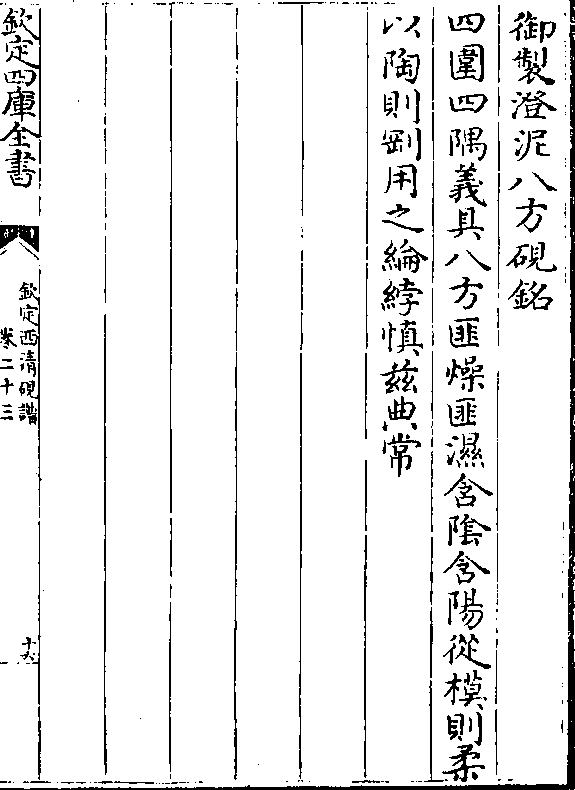 御製澄泥八方硯銘
四圍四隅義具八方匪燥匪濕含陰含陽從模則柔
以陶則剛用之綸綍慎兹典常
欽定四庫全書
欽定西清硯譜
卷二十三
十六